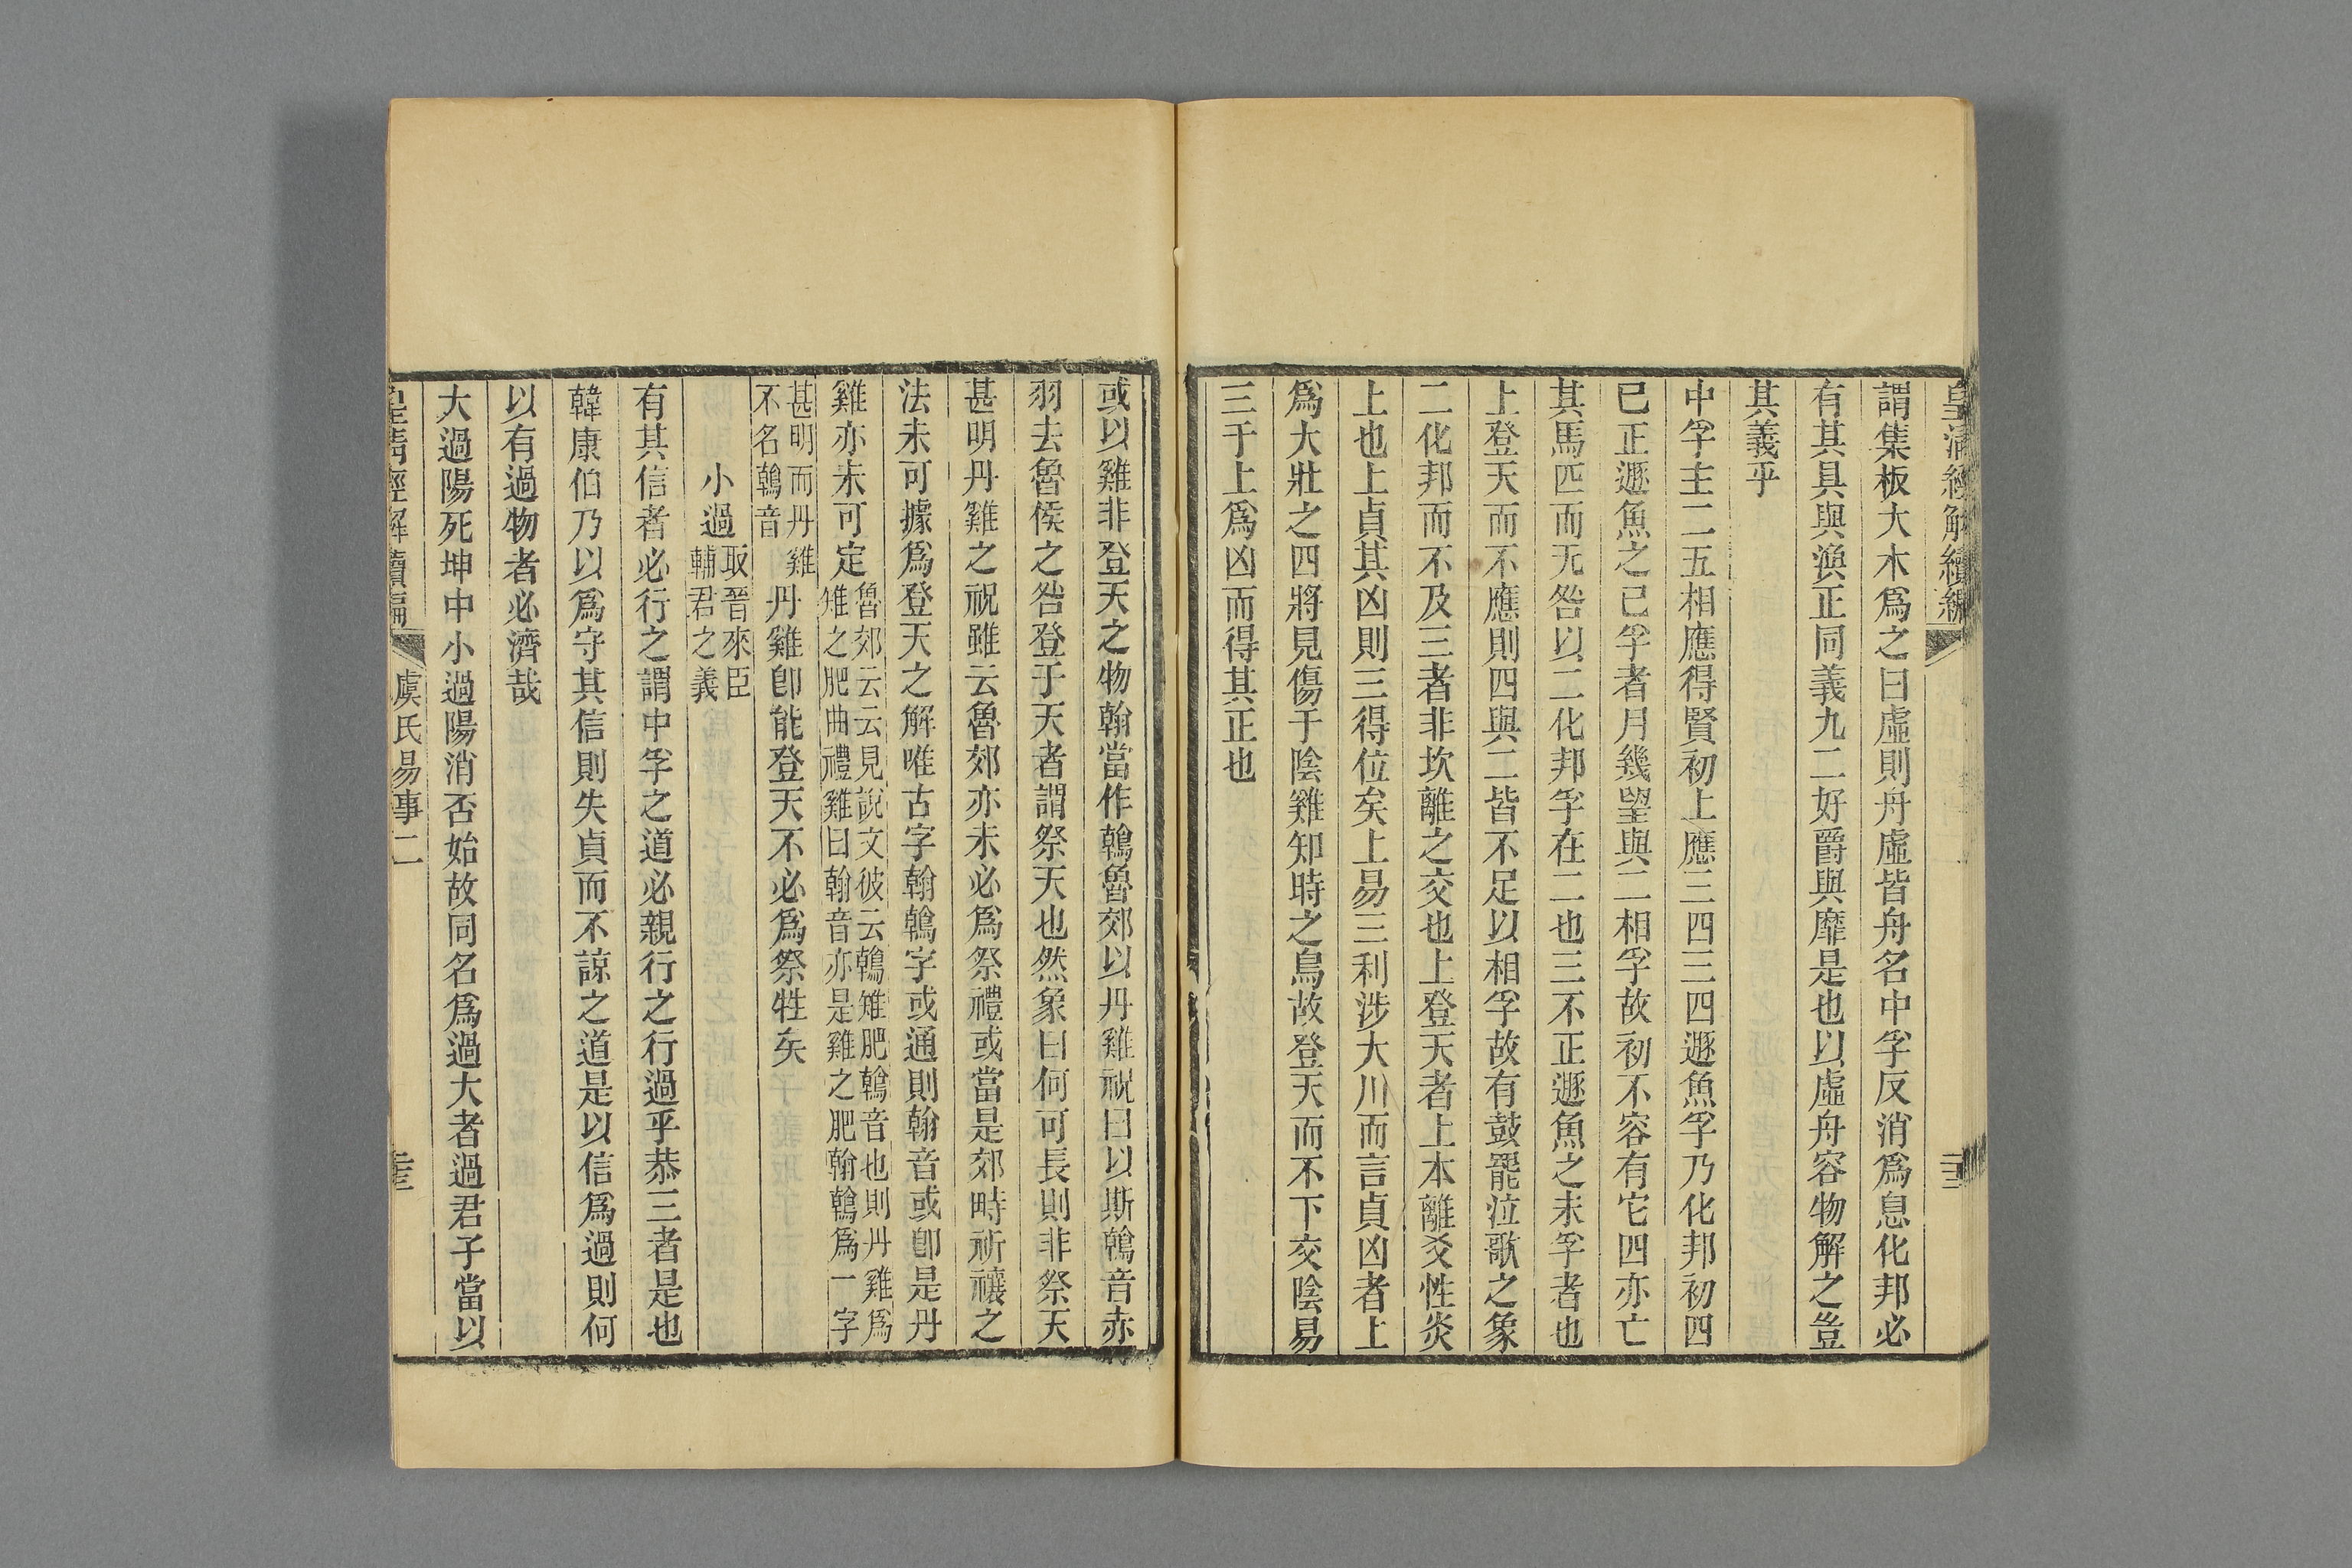 皇清經解續編
謂集板大木爲之曰虛則舟虛皆舟名中孚反消爲息化邦必
有其具與渙正同義九二好爵與靡是也以虛舟容物解之豈
其義乎
中孚主二五相應得賢初上應三四三四遯魚孚乃化邦初四
已正遯魚之已孚者月幾望與二相孚故初不容有它四亦亡
其馬匹而无咎以二化邦孚在二也三不正遯魚之未孚者也
上登天而不應則四與二皆不足以相孚故有鼓罷泣歌之象
二化邦而不及三者非坎離之交也上登天者上本離爻性炎
上也上貞其凶則三得位矣上易三利涉大川而言貞凶者上
爲大壯之四將見傷于陰雞知時之鳥故登天而不下交陰易
三于上爲凶而得其正也
或以雞非登天之物翰當作鶾魯郊以丹雞祝曰以斯鶾音赤
羽去魯侯之咎登于天者謂祭天也然象曰何可長則非祭天
甚明丹雞之祝雖云魯郊亦未必爲祭禮或當是郊時祈禳之
法未可據爲登天之解唯古字翰鶾字或通則翰音或卽是丹
雞亦未可定
魯郊云云見說文彼云鶾雉肥鶾音也則丹雞爲
雉之肥曲禮雞曰翰音亦是雞之肥翰鶾爲一字
甚明而丹雞
不名鶾音
丹雞卽能登天不必爲祭牲矣
小過
取晉來臣
輔君之義
有其信者必行之謂中孚之道必親行之行過乎恭三者是也
韓康伯乃以爲守其信則失貞而不諒之道是以信爲過則何
以有過物者必濟哉
大過陽死坤中小過陽消否始故同名爲過大者過君子當以
皇清經解續編
虞氏易事二